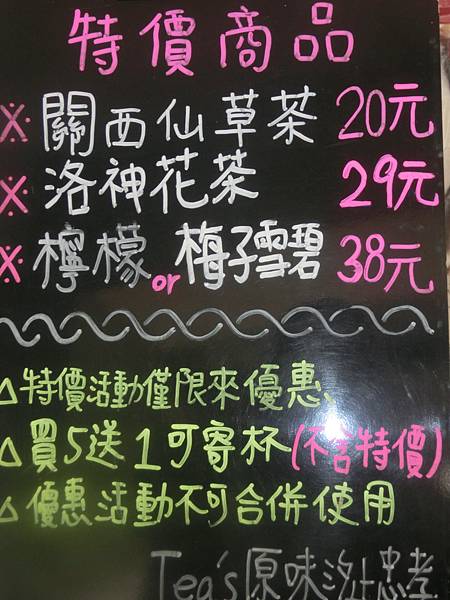 特價商品
※關西仙草茶 20元
※洛神花茶 29元
※檸檬or梅子雪碧 38元
△特價活動僅限來優惠
△買5送1可寄杯(不含特價)
△優惠活動不可合併使用
Tea's原味 忠孝